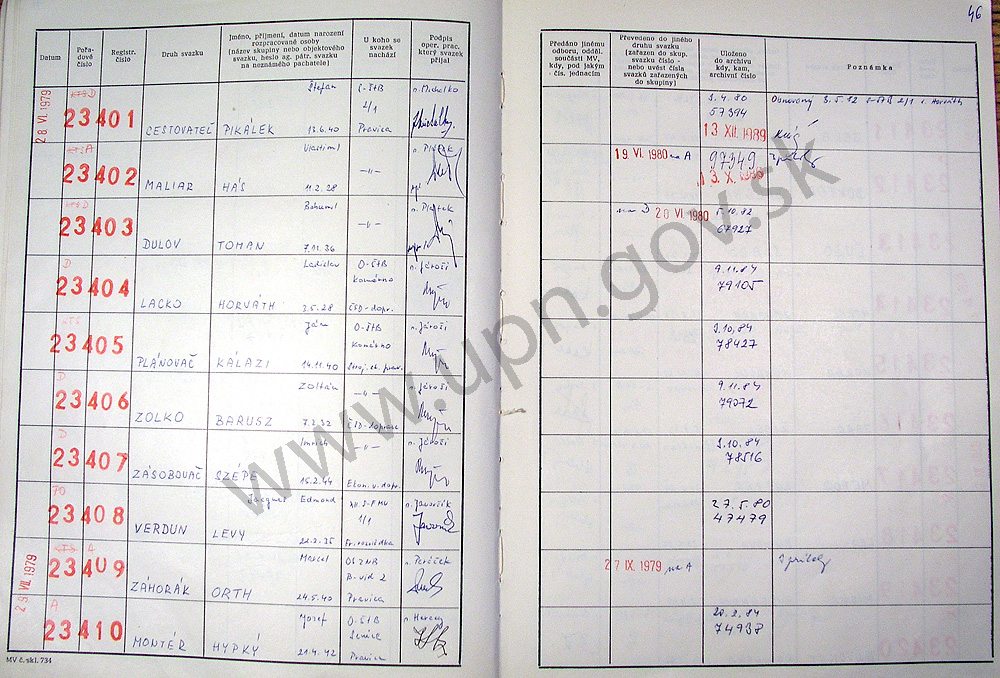 46
Datum
Pořadové číslo
Registr. číslo
Druh svazku
Jméno, příjmení, datum narození rozpracované osoby (název skupiny nebo objektového svazku, heslo ag. pátr. svazku na neznámého pachatele)
U koho se svazek nachází
Podpis oper. prac. který svazek přijal
Předáno jinému odboru, odděl. součásti MV, kdy, pod jakým čís. jednacím
Převedeno do jiného druhu svazku (zařazen do skup. svazku číslo - nebo uvést čísla svazků zařazených do skupiny)
Uloženo do archivu kdy, kam, archivní číslo
Poznámka
28 VI. 1979
D
23401
CESTOVATEĽ
Štefan
PIKÁLEK 13.6.40
S-ŠtB
2/1
Pravica
n. Michalko
3.4.80
57394
13 XII. 1989
Obnovený 3.5.82 S-ŠtB 2/1 n. Horváth
A
23402
MALIAR
Vlastimil
HÁS 11.2.28
-"-
19 VI. 1980 na A
97349
3. X. 1986
23403
DULOV
Bohumil
TOMAN 7.11.36
-"-
na D 20 VI. 1980
5.10.82
67927
D
23404
LACKO
Ladislav
HORVÁTH 3.5.28
O-ŠtB
Komárno
ČSD-dopr.
n. Jároši
9.11.84
79105
23405
PLÁNOVAČ
Ján
KÁLAZI 14.11.40
O-ŠtB
Komárno
n. Jároši
3.10.84
78427
D
23406
ZOLKO
Zoltán
BARUSZ 7.2.32
-"-
ČSD-doprava
n. Jároši
9.11.84
79072
D
23407
ZÁSOBOVAČ
Imrich
SZÉPE 15.2.44
-"-
Ekon. v. dopr.
n. Jároši
3.10.84
78516
PO
23408
VERDUN
Jacques Edmond
LEVY
XII. S-FMV
1/1
n. Javorčík
27.5.80
47479
29. VIII. 1979
A
23409
ZÁHORÁK
Marcel
ORTH 24.5.40
OS ZNB
B-vid 2
Pravica
27 IX. 1979 na A
A
23410
MONTÉR
Jozef
HYPKÝ 21.4.42
O-ŠtB
Senica
Pravica
20.2.84
74938
MV č. skl. 734
www.upn.gov.sk